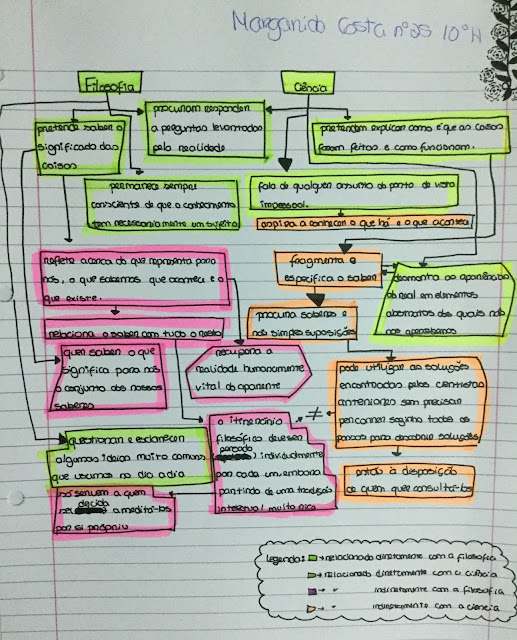 Margarida Costa nº25 10ºH
Filosofia
Ciência
procuram responder
a perguntas levantadas
pela realidade
pretende saber o
significado das
coisas
pretendem explicar como é que as coisas
foram feitas e como funcionam.
permanece sempre
consciente de que o conhecimento
tem necessariamente um sujeito
fala de qualquer assunto do ponto de vista
impessoal.
aspira a conhecer o que há e o que acontece
reflete acerca do que representa para
nós, o que sabemos que acontece e o
que existe.
fragmenta e
especifica o saber
desmonta as aparências
do real em elementos
dos quais não
nos apercebemos
relaciona o saber com tudo o resto
procura saberes e
não simples suposições
quer saber o que
significa para nós
o conjunto dos nossos
saberes
recupera a
realidade humanamente
vital do aparente
pode utilizar as soluções
encontradas pelos cientistas
anteriores sem precisar
percorrer sozinho todos os
para descobrir soluções
questionar e esclarecer
algumas ideias muito comuns
que usamos no dia a dia
o itinerário
filosófico deve ser
pensado
individualmente
por cada um embora
partindo de uma tradição
muito rica
≠
só servem a quem
decida
a meditá-las
por si próprio
estão à disposição
de quem quer consultá-las
Legenda: → relacionado diretamente com a filosofia
→ relacionado diretamente com a ciência
→ " " indiretamente com a filosofia
→ " " indiretamente com a ciência